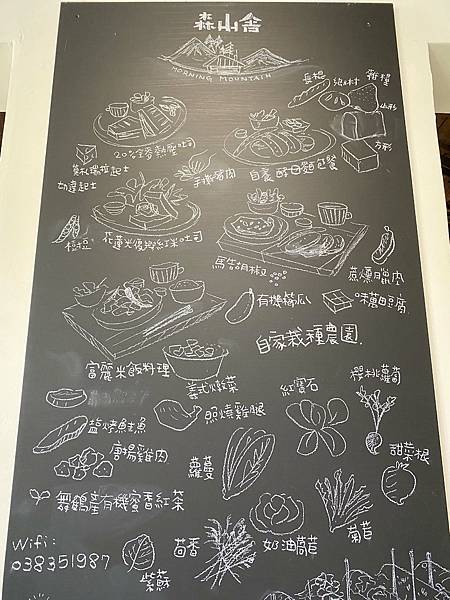 森山舍
MORNING MOUNTAIN
長棍
雜糧
山形
方形
20%全麥熱壓吐司
莫札瑞拉起士
切達起士
手撕豬肉
自養酵母麵包餐
樹豆
花蓮米優鄉紅米吐司
馬告胡椒
蔗燻腿肉
有機櫛瓜
味萬田豆腐
自家栽種農園.
富麗米飯料理
義式燉菜
紅寶石
櫻桃蘿蔔
鹽烤鮭魚
照燒雞腿
唐揚雞肉
蘿蔓
甜菜根
舞鶴產有機蜜香紅茶
茴香
奶油萵苣
菊苣
Wifi:
038351987
紫蘇